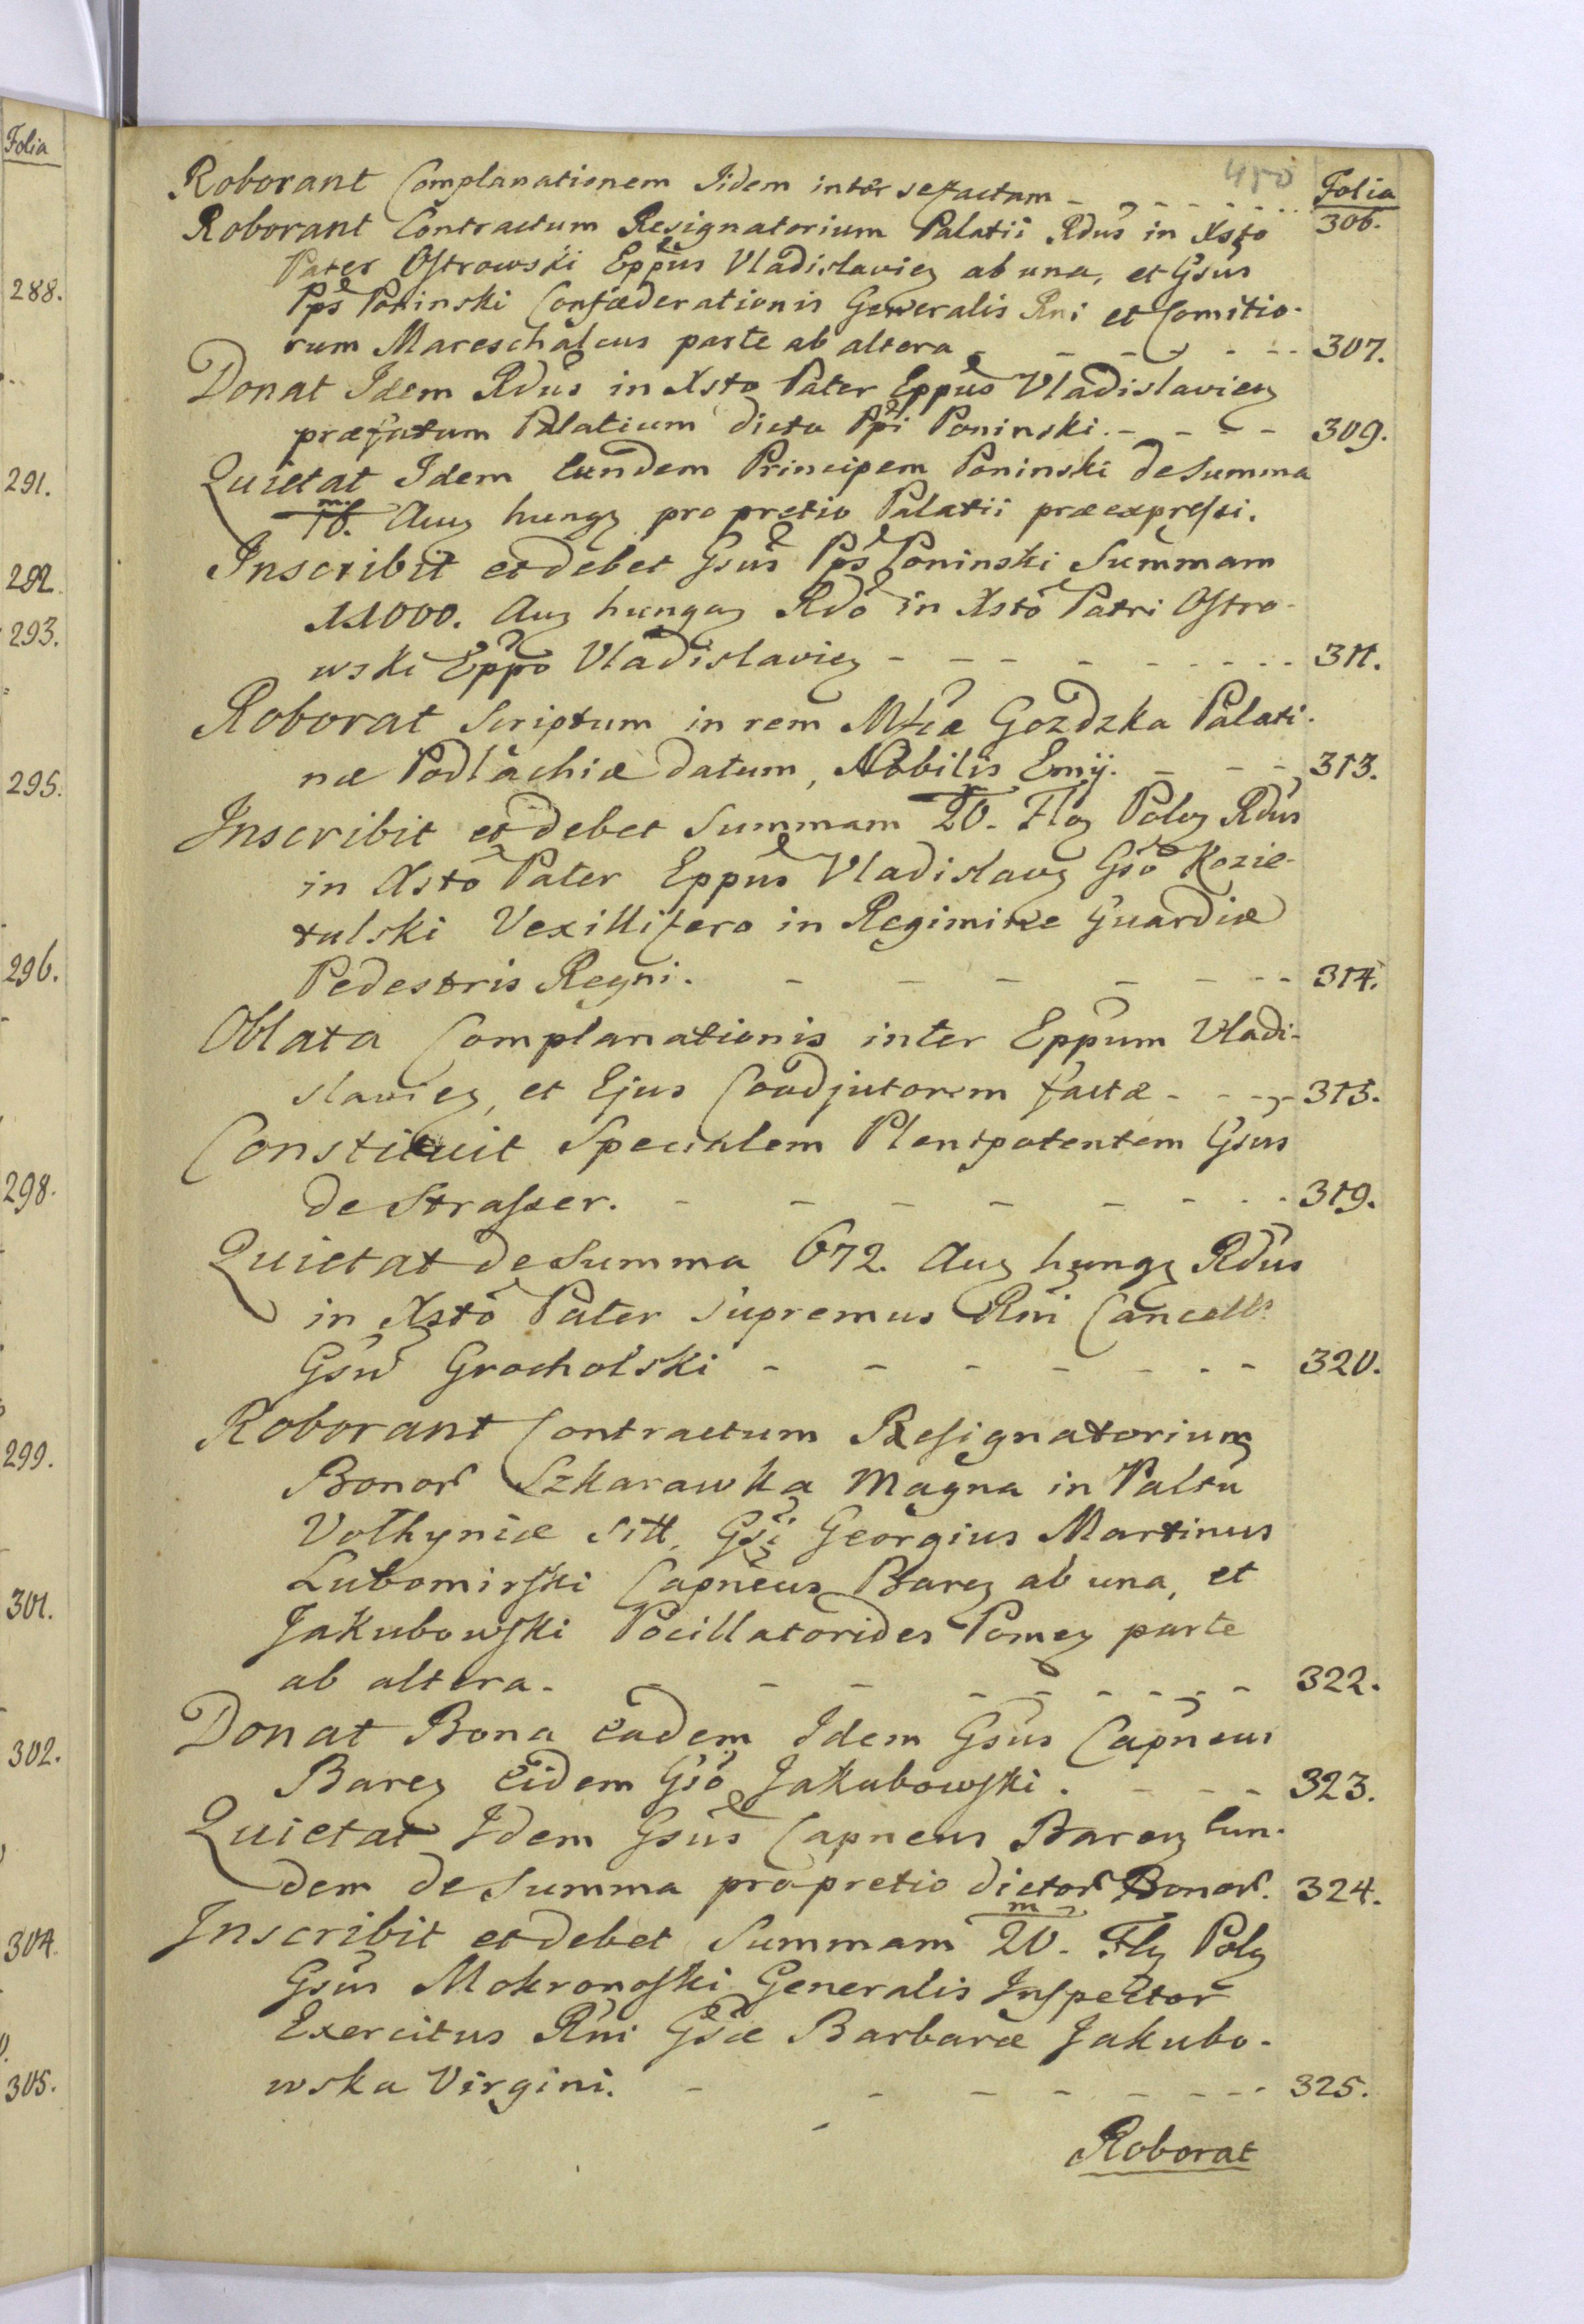 Folia
288.
291.
292.
293.
295.
296.
298.
299.
301.
302.
304.
305.
450
Folia
Roborant Complanationem Iidem inter se factam - - - - - - 306.
Roborant Contractum Resignatorium Palatii Rdus in Xsto
Pater Ostrowski Eppus Vladislavien ab una, et Gsus
Pps Poninski Confæderationis Generalis Rni et Comitio-
rum Mareschalcus parte ab altera - - - - - - 307.
Donat Idem Rdus in Xsto Pater Eppus Vladislavien
præfatum Palatium dicto Ppi Poninski. - - - - 309.
Quietat Idem Eundem Principem Poninski de Summa
m/16. Aur hung pro pretio Palatii præexpressi.
Inscribit et debet Gsus Pps Poninski Summam
11000. Aur hungar Rdo in Xsto Patri Ostro-
wski Eppo Vladislavien - - - - - - - - 311.
Roborat Scriptum in rem Mfcæ Gozdzka Palati-
næ Podlachiæ datum, Nobilis Emÿ. - - - 313.
Inscribit et debet Summam m/20. Flor Polon Rdus
in Xsto Pater Eppus Vladislav Gso Kozie-
tulski Vexillifero in Regimine Guardiæ
Pedestris Regni. - - - - - - - 314.
Oblata Complanationis inter Eppum Vladi-
slavien, et Ejus Coadjutorem factæ - - - - 315.
Constituit Specialem Plenipotentem Gsus
de Strasser. - - - - - - - - 319.
Quietat de Summa 672. Aur hung Rdus
in Xsto Pater Supremus Rni Cancells
Gsum Grocholski - - - - - - - - 320.
Roborant Contractum Resignatorium
Bonor Szkarawka Magna in Paltu
Volhyniæ Sitt, Gsi Georgius Martinus
Lubomirski Capneus Baren ab una, et
Jakubowski Pocillatorides Pomer parte
ab altera. - - - - - - - - - 322.
Donat Bona Eadem Idem Gsus Capneus
Baren Eidem Gso Jakubowski. - - - 323.
Quietat Idem Gsus Capneus Baren Eun-
dem de Summa pro pretio dictor Bonor. 324.
Inscribit et debet Summam m/20. Flor Polon
Gsus Mokronoski Generalis Inspector
Exercitus Rni Gsæ Barbaræ Jakubo-
wska Virgini. - - - - - - - - 325.
Roborat